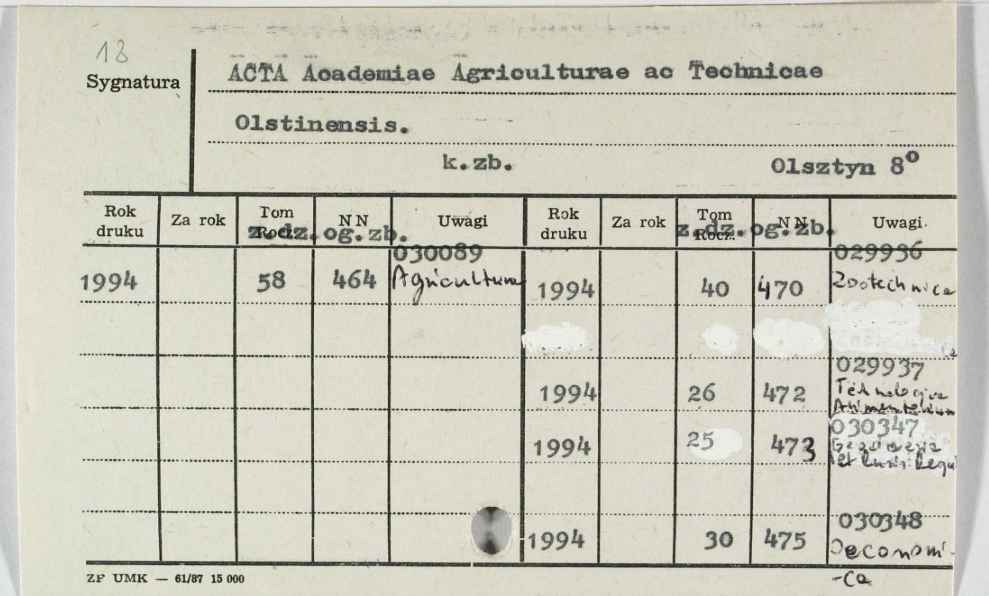 13
Sygnatura
ACTA Academiae Agriculturae ac Technicae
Olstinensis.
k.zb. Olsztyn 8°
Rok druku Za rok Tom Rocz. NN Uwagi Rok druku Za rok Tom Rocz. NN Uwagi
z.dz.og.zb. z.dz.og.zb.
030089 029936
1994 58 464 Agricultura 1994 40 470 Zootechnica
029937
1994 26 472 Technologia
Alimentorum
030347
1994 25 473
et Ruris Regu
030348
1994 30 475 Oeconomi-
-ca
ZP UMK — 61/87 15 000